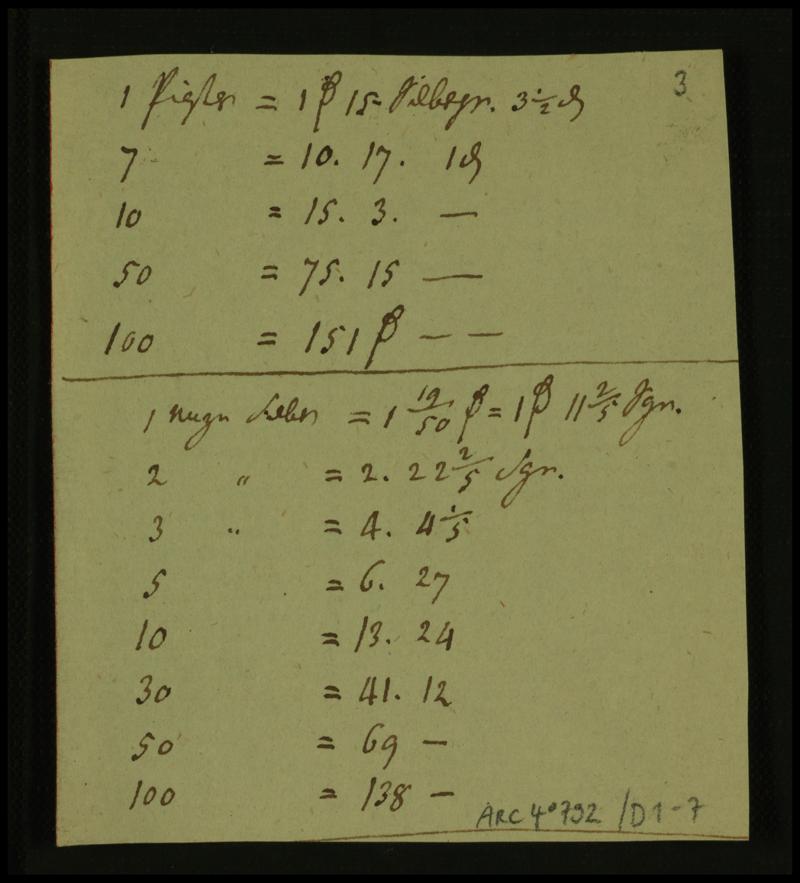 3
1 Piaster = 1 β 15 Silbergr. 3 1/2 ₰
7 = 10. 17. 1 ₰
10 = 15. 3. —
50 = 75. 15 —
100 = 151 β — —
1 = 1 19/50 β = 1 β 11 2/5 Sgr.
2 " = 2. 22 2/5 Sgr.
3 " = 4. 4 1/5
5 = 6. 27
10 = 13. 24
30 = 41. 12
50 = 69 —
100 = 138 —
ARC 4° 792 /D1-7